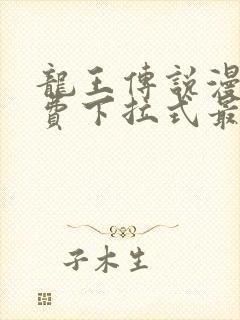 龍王傳說漫
費下拉式最
子木生